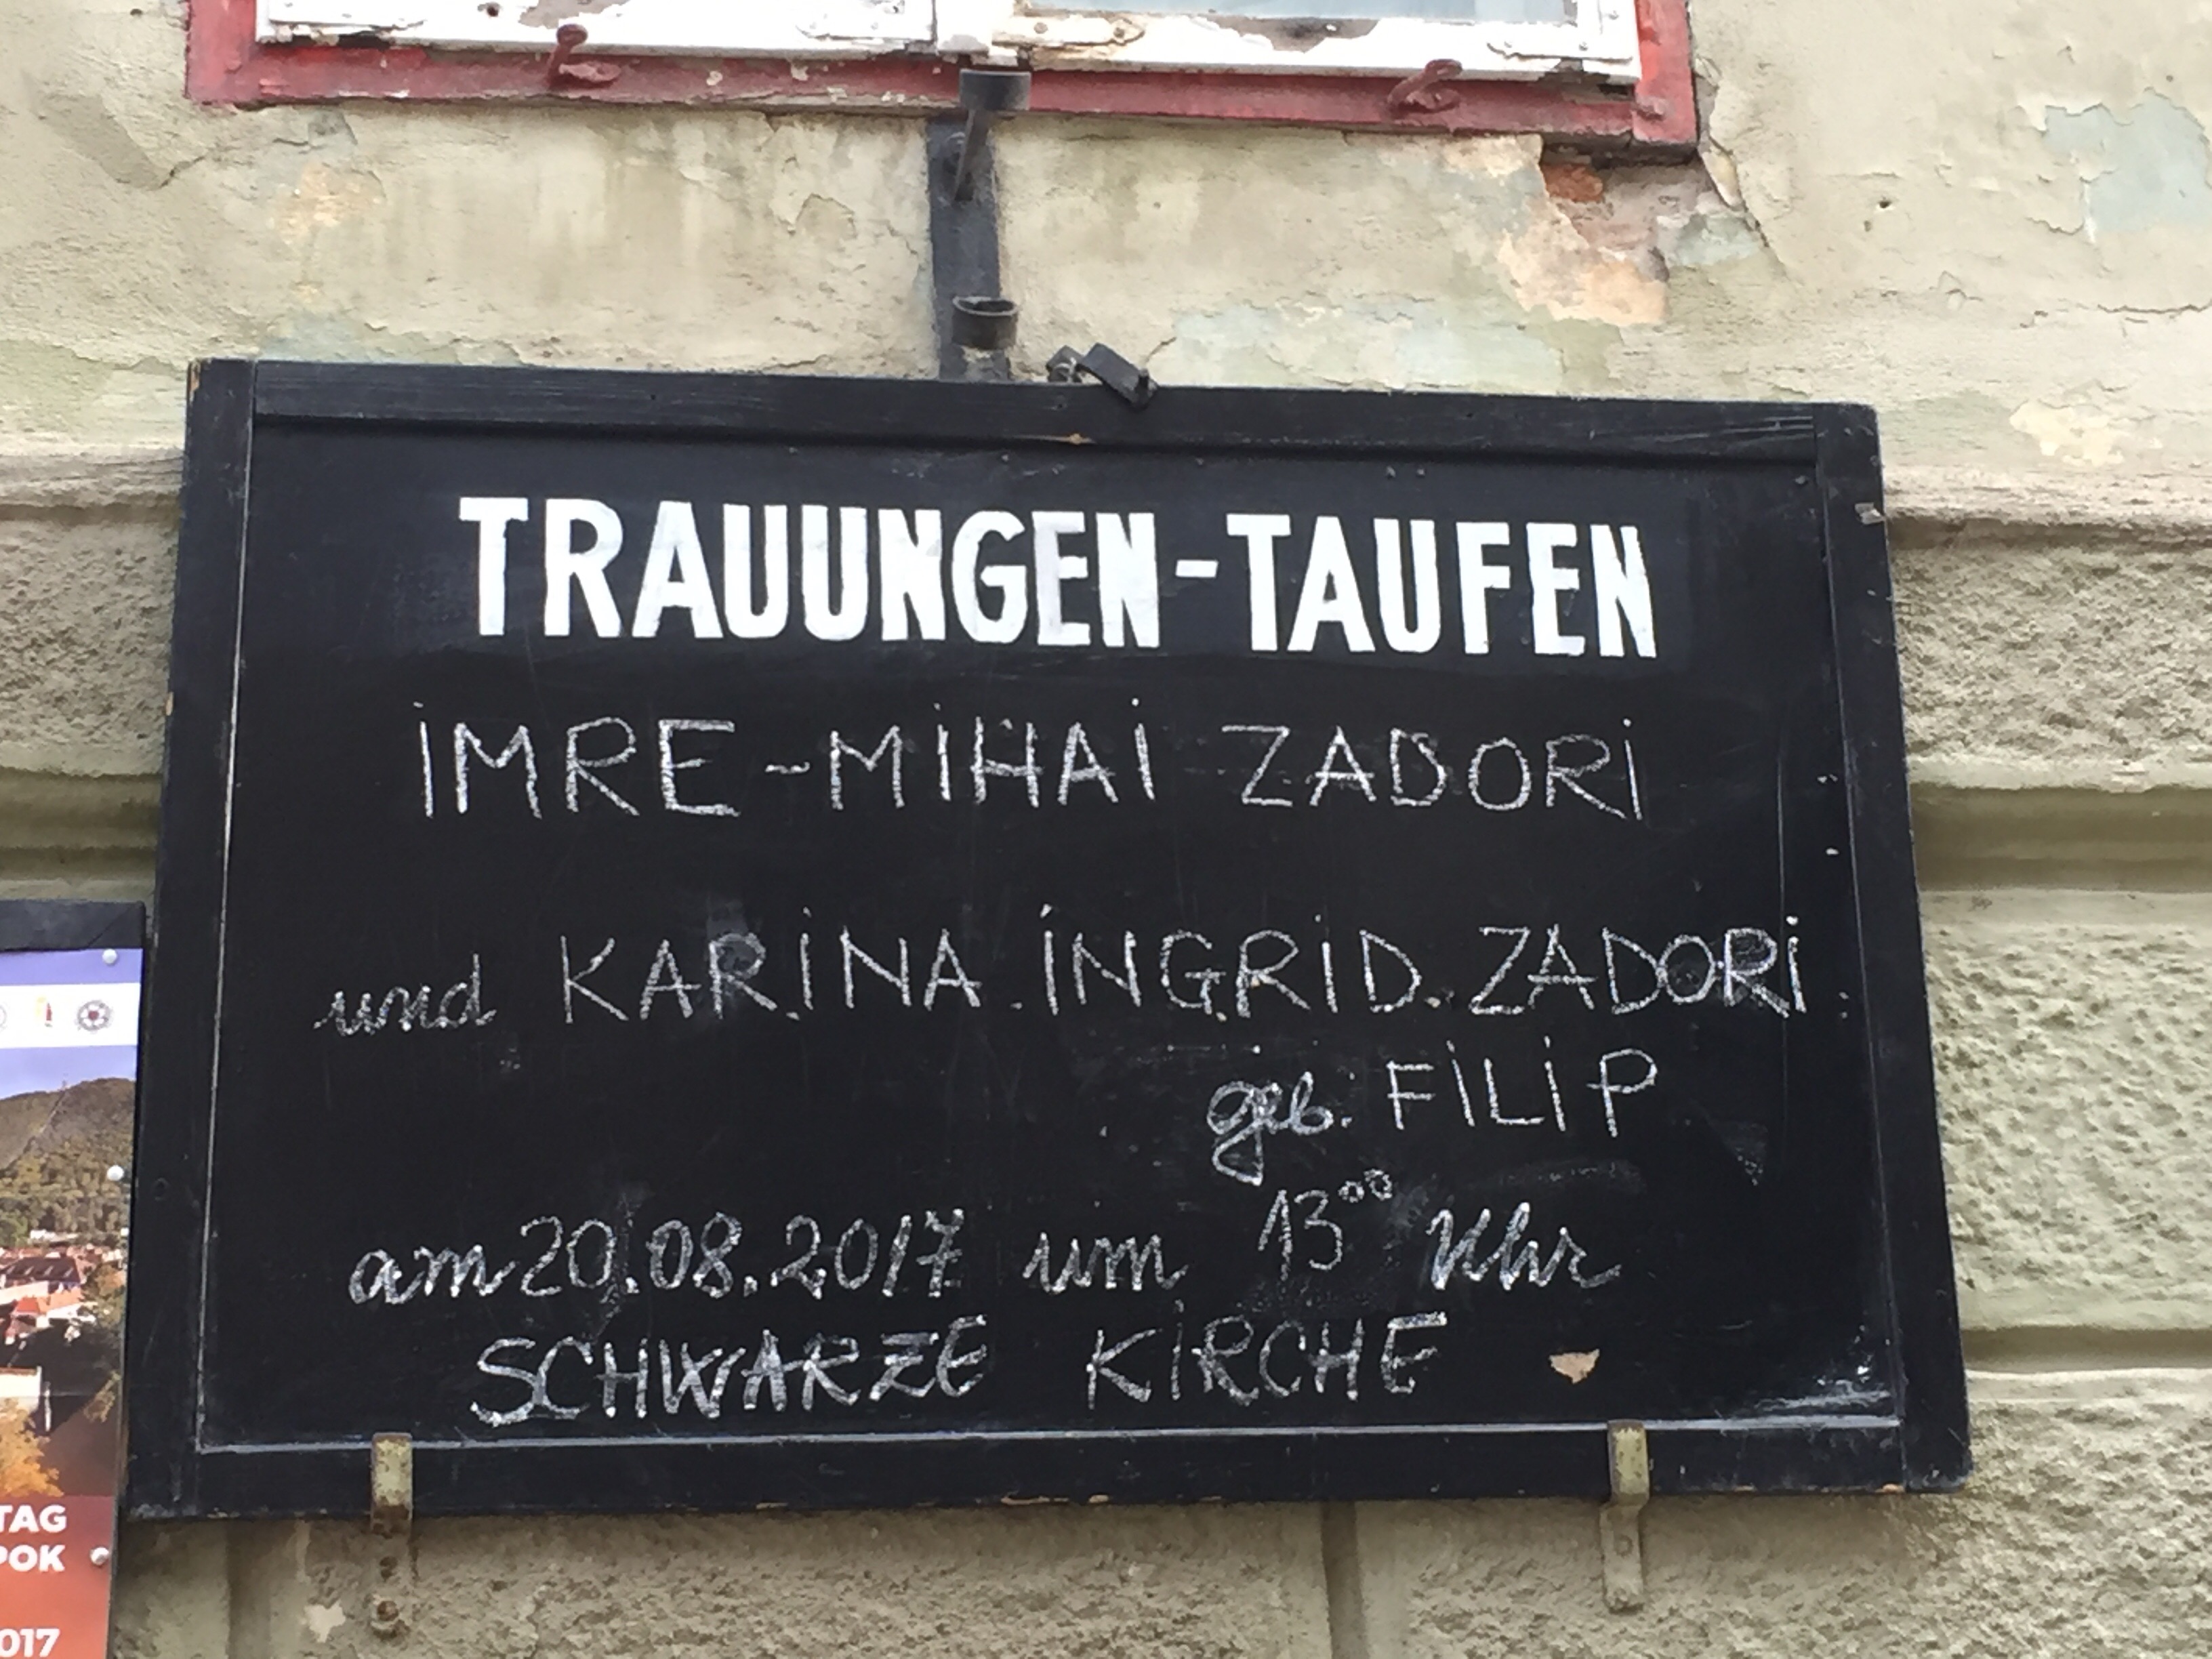 TRAUUNGEN-TAUFEN
IMRE-MIHAI ZADORI
und KARINA INGRID ZADORI
geb. FILIP
am 20.08.2017 um 13⁰⁰ Uhr
SCHWARZE KIRCHE
TAG
POK
017